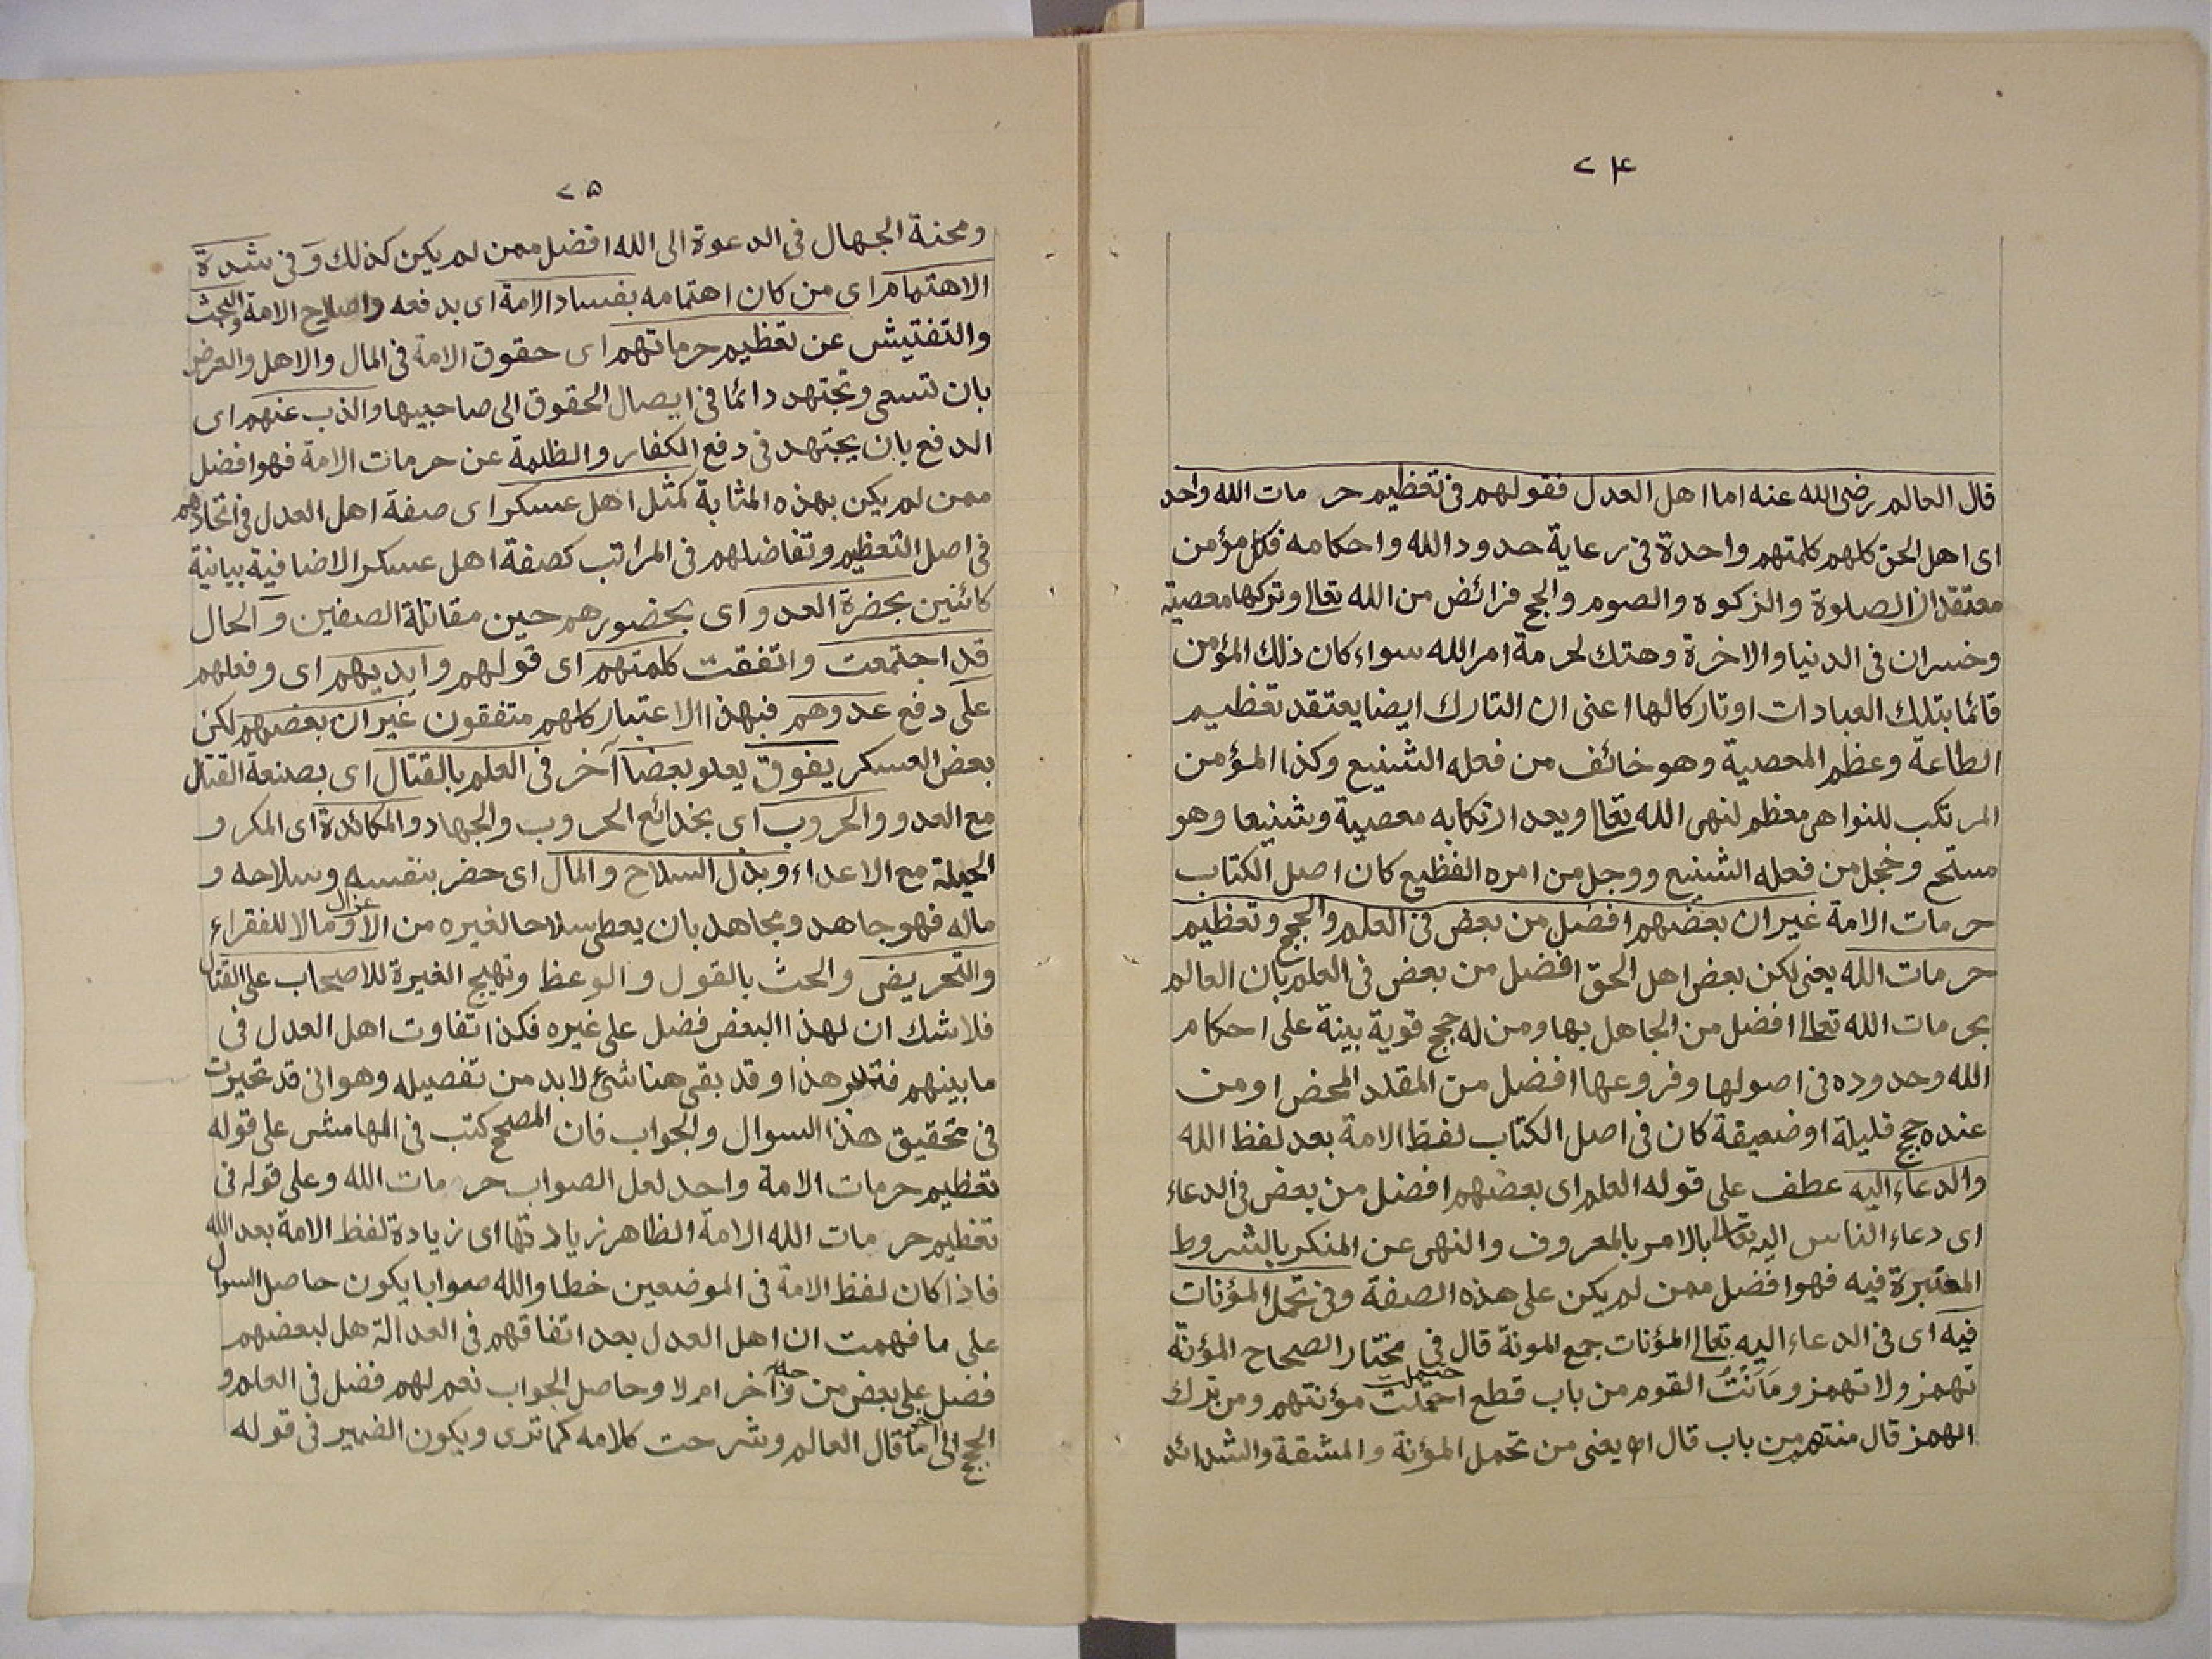 ٢۴
قال العالم رضى الله عنه اما اهل العدل فقولهم فى تعظيم حرمات الله واحد
اى اهل الحق كلهم كلمتهم واحدة فى رعاية حدود الله واحكامه فكل مؤمن
معتقد ان الصلوة والزكوه والصوم والحج فرائض من الله تعالى وتركها معصية
وخسران فى الدنيا والاخرة وهتك لحرمة امر الله سواء كان ذلك المؤمن
قائما بتلك العبادات او تاركا لها اعنى ان التارك ايضا يعتقد تعظيم
الطاعة وعظم المعصية وهو خائف من فعله الشنيع وكذا المؤمن
المرتكب للنواهى معظم لنهى الله تعالى ويعد ارتكابه معصية وشنيعا وهو
مستحى وخجل من فعله الشنيع ووجل من امره الفظيع كان اصل الكتاب
حرمات الامة غير ان بعضهم افضل من بعض فى العلم والحجج وتعظيم
حرمات الله يعنى لكن بعض اهل الحق افضل من بعض فى العلم بان العالم
بحرمات الله تعالى افضل من الجاهل بها ومن له حجج قوية بينة على احكام
الله وحدوده فى اصولها وفروعها افضل من المقلد المحض او من
عنده حجج قليلة او ضعيفة كان فى اصل الكتاب لفظ الامة بعد لفظ الله
والدعاء اليه عطف على قوله العلم اى بعضهم افضل من بعض فى الدعاء
اى دعاء الناس اليه تعالى بالامر بالمعروف والنهى عن المنكر بالشروط
المعتبرة فيه فهو افضل ممن لم يكن على هذه الصفة وفى تحمل المؤنات
فيه اى فى الدعاء اليه تعالى المؤنات جمع المونة قال فى مختار الصحاح المؤنة
تهمز ولا تهمز ومَأَنْتُ القوم من باب قطع احتملت مؤنتهم ومن ترك
الهمز قال منتهم من باب قال اه يعنى من تحمل المؤنة والمشقة والشدائد
٢۵
ومحنة الجهال فى الدعوة الى الله افضل ممن لم يكن كذلك وفى شدة
الاهتمام اى من كان اهتمامه بفساد الامة اى بدفعه واصلاح الامة والبحث
والتفتيش عن تعظيم حرماتهم اى حقوق الامة فى المال والاهل والعرض
بان تسعى وتجتهد دائما فى ايصال الحقوق الى صاحبيها والذب عنهم اى
الدفع بان يجتهد فى دفع الكفار والظلمة عن حرمات الامة فهو افضل
ممن لم يكن بهذه المثابة كمثل اهل عسكر اى صفة اهل العدل فى اتحادهم
فى اصل التعظيم وتفاضلهم فى المراتب كصفة اهل عسكر الاضافية بيانية
كائنين بحضرة العدو اى بحضورهم حين مقاتلة الصفين و الحال
قد اجتمعت واتفقت كلمتهم اى قولهم وايديهم اى وفعلهم
على دفع عدوهم فبهذا الاعتبار كلهم متفقون غير ان بعضهم لكن
بعض العسكر يفوق يعلو بعضا آخر فى العلم بالقتال اى بصنعة القتال
مع العدو والحروب اى بخدائع الحروب والجهاد والمكائدة اى المكر و
الحيلة مع الاعداء وبذل السلاح والمال اى حضر بنفسه وسلاحه و
ماله فهو جاهد ومجاهد بان يعطى سلاحا لغيره من العزال او مالا للفقراء
والتحريض والحث بالقول والوعظ وتهيج الغيرة للاصحاب على القتال
فلا شك ان لهذا البعض فضل على غيره فكذا تفاوت اهل العدل فى
ما بينهم فتدبر هذا وقد بقى هنا شىء لا بد من تفصيله وهو انى قد تحيرت
فى تحقيق هذا السوال والجواب فان المصحح كتب فى الهامش على قوله
تعظيم حرمات الامة واحد لعل الصواب حرمات الله وعلى قوله فى
تعظيم حرمات الله الامة الظاهر زيادتها اى زيادة لفظ الامة بعد الله
فاذا كان لفظ الامة فى الموضعين خطا والله صوابا يكون حاصل السوال
على ما فهمت ان اهل العدل بعد اتفاقهم فى العدالة هل لبعضهم
فضل على بعض من آخر ام لا وحاصل الجواب نعم لهم فضل فى العلم و
الحجج الى آخر ما قال العالم وشرحت كلامه كما ترى ويكون الضمير فى قوله